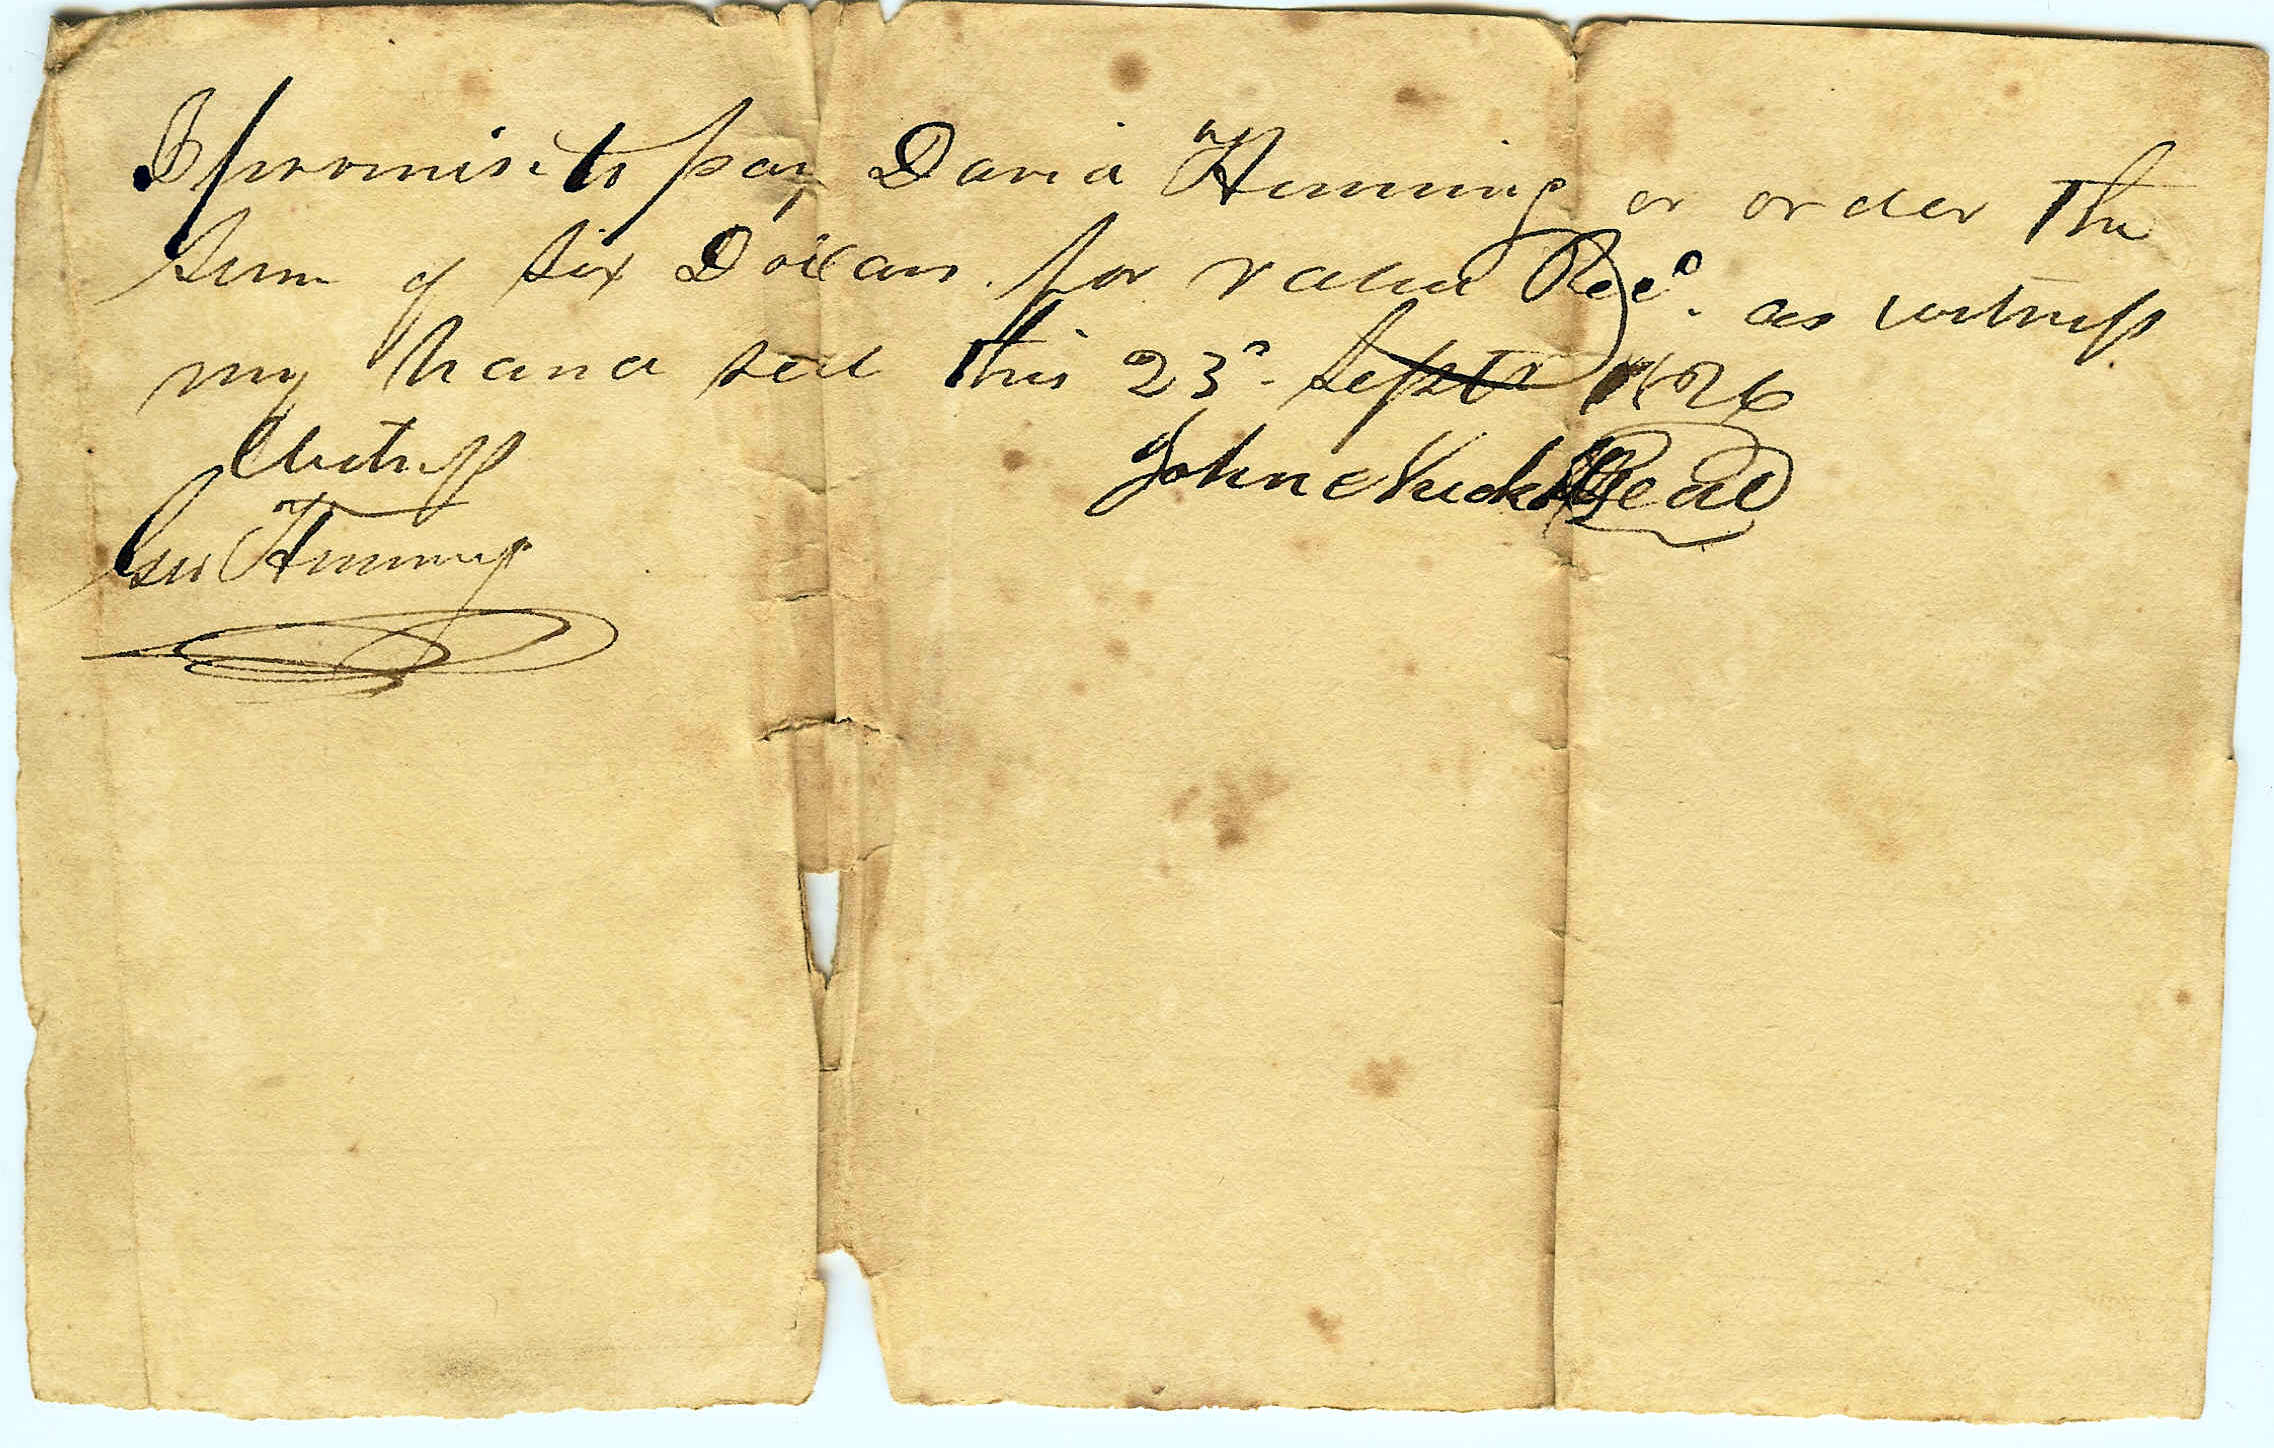 I promise to pay David Henning or order the
Sum of Six Dollars for value Recd. as witness
my hand seal this 23d. Septr 1826
Witness
John Seal
Henning